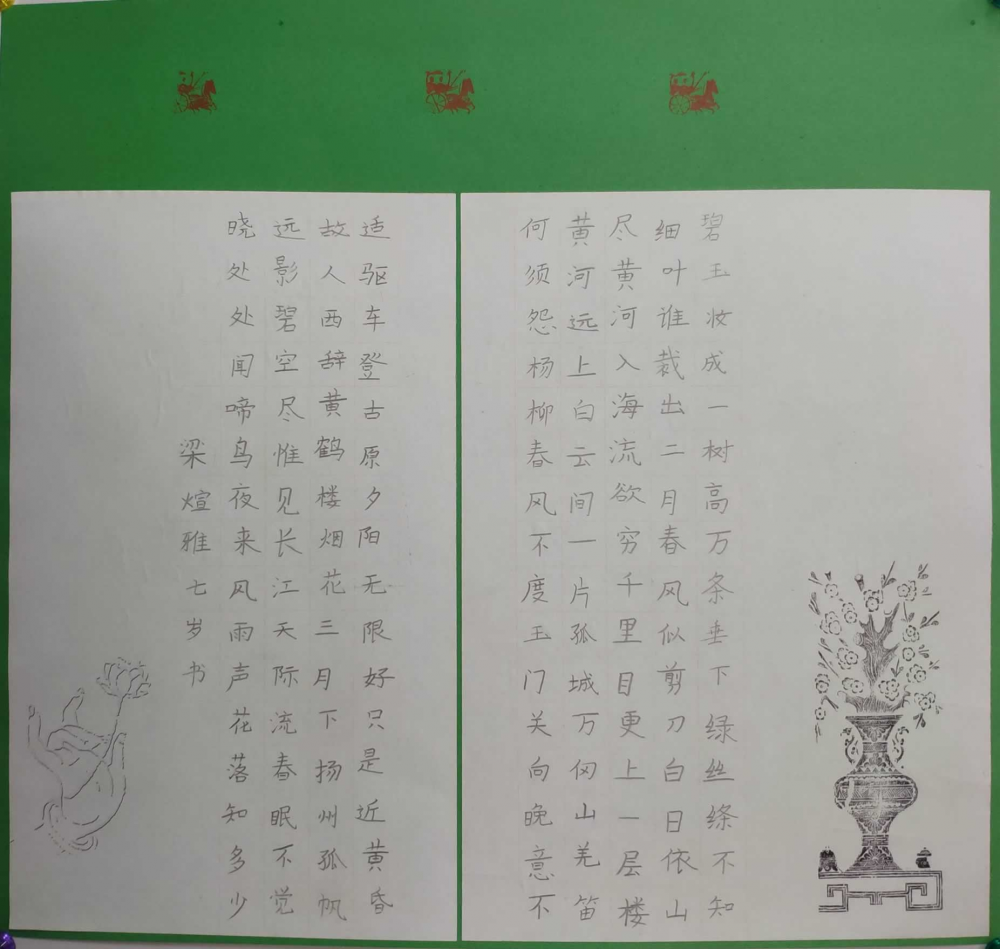 碧玉妆成一树高万条垂下绿丝绦不知
细叶谁裁出二月春风似剪刀白日依山
尽黄河入海流欲穷千里目更上一层楼
黄河远上白云间一片孤城万仞山羌笛
何须怨杨柳春风不度玉门关向晚意不
适驱车登古原夕阳无限好只是近黄昏
故人西辞黄鹤楼烟花三月下扬州孤帆
远影碧空尽惟见长江天际流春眠不觉
晓处处闻啼鸟夜来风雨声花落知多少
梁煊雅七岁书